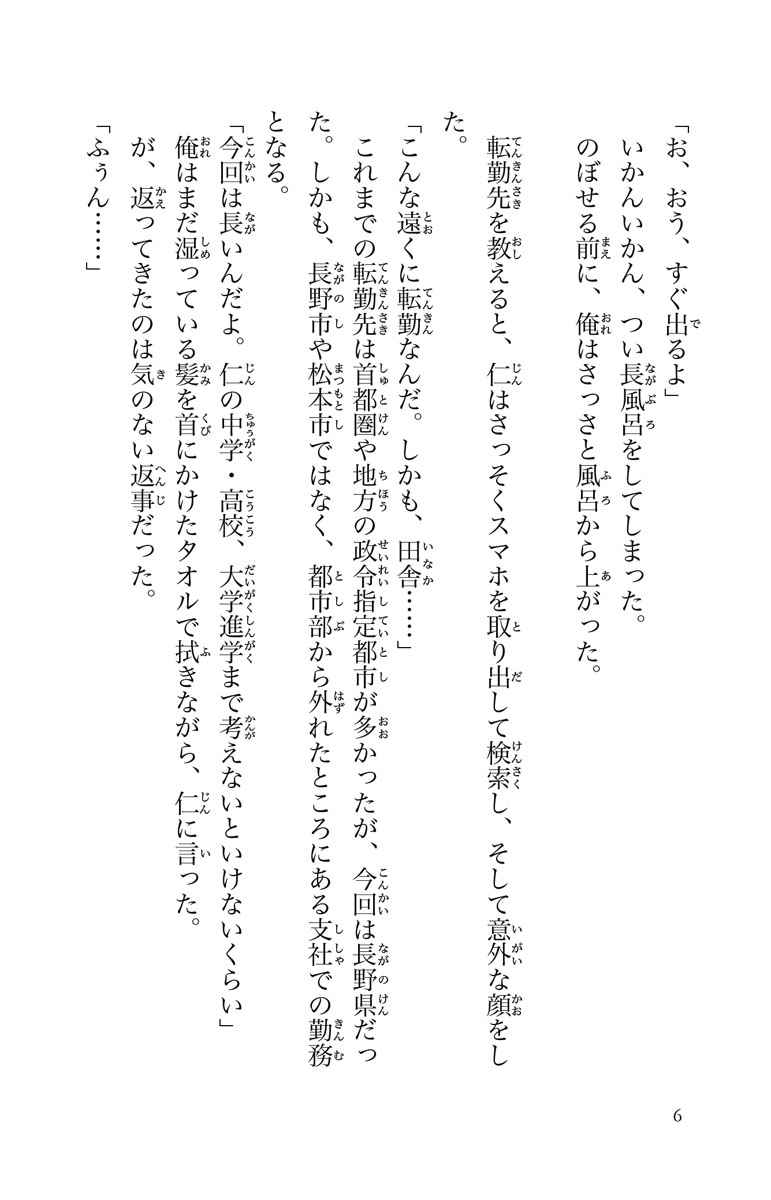 「お、おう、すぐ出るよ」
いかんいかん、つい長風呂をしてしまった。
のぼせる前に、俺はさっさと風呂から上がった。
転勤先を教えると、仁はさっそくスマホを取り出して検索し、そして意外な顔をし
た。
「こんな遠くに転勤なんだ。しかも、田舎……」
これまでの転勤先は首都圏や地方の政令指定都市が多かったが、今回は長野県だっ
た。しかも、長野市や松本市ではなく、都市部から外れたところにある支社での勤務
となる。
「今回は長いんだよ。仁の中学・高校、大学進学まで考えないといけないくらい」
俺はまだ湿っている髪を首にかけたタオルで拭きながら、仁に言った。
が、返ってきたのは気のない返事だった。
「ふぅん……」
6